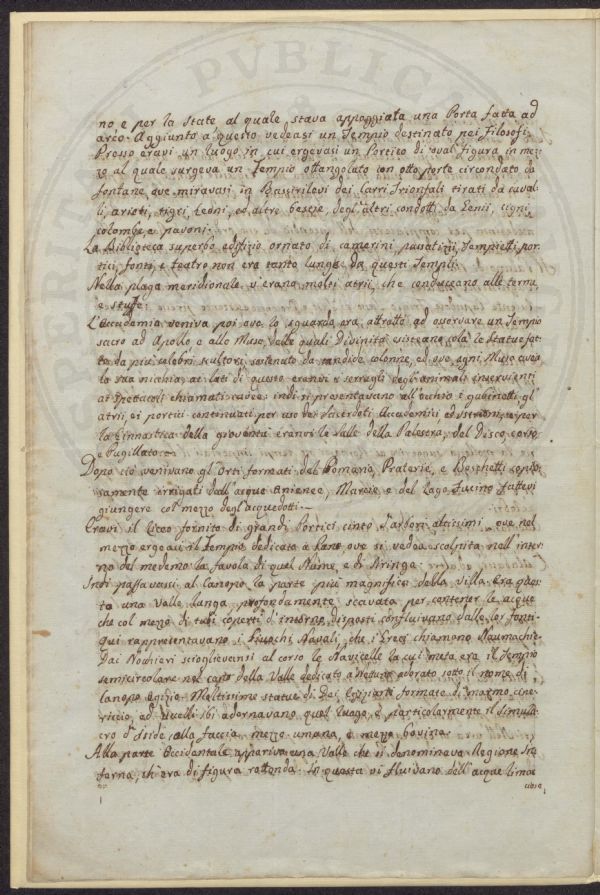 PVBLICA
no e per la State al quale stava appoggiata una Porta fatta ad
arco. Aggiunto a questo vedeasi un Tempio destinato pei Filosofi.
Presso eravi un luogo in cui ergevasi un Portico di oval figura in mez
zo al quale surgeva un Tempio ottangolato con otto porte circondato da
fontane, ove miravasi in Bassirilevi dei Carri Trionfali tirati da caval-
li, arieti, tigri, leoni, ed altre bestie, degl'altri condotti da Genii, cigni
colombe, e pavoni.
La Biblioteca superbo edifizio ornato di camerini, Tempietti, por
tici, fonti, e teatro non era tanto lunge da questi Templi.
Nella plaga meridionale v'erano molti atrii, che conduceano alle terme,
e stufe.
L'Accademia veniva poi ove lo sguardo era attratto ad osservare un Tempio
sacro ad Apollo e alle Muse, delle quali Divinità colà le Statue fat
te da più celebri scultori, sostenuto da candide colonne, ed ove ogni Musa avea
la sua nicchia; ai lati di questo eranvi i serragli degl'animali
ai Spettacoli chiamati cadee: indi si presentavano all'occhio i gabinetti, gl'
atrii, ei portici continuati per uso dei Sacerdoti Accademici ed istrioni, e per
la Ginnastica della gioventù eranvi le Valle della Palestra, del Disco, corso
e Pugillato.
Dopo ciò venivano gl'Orti formati del Pomario, Praterie, e Boschetti copio
samente irrigati dall'acque Aniene, Marcie, e del Lago Fucino fattevi
giungere col mezzo degl'acquedotti.
Eravi il Liceo fornito di grandi Portici cinto d'arbori altissimi, ove nel
mezzo ergeasi il Tempio dedicato a Pane, ove si vedea scolpita nell'inter
no del medemo la favola di quel Nume, e di Siringa.
Indi passavasi al Canopo la parte più magnifica della Villa. Era ques
ta una Valle lunga, profondamente scavata per contener le acque
che col mezzo di tubi coperti d'intorno disposti confluivano dalle lor fonti.
Qui rappresentavano i Giuochi Navali, che i Greci chiamano Naumachie.
Dai Nochieri scioglievansi al corso le Navicelle la cui meta era il Tempio
semicircolare nel capo della Valle dedicato a Nettuno adorato sotto il nome di
Canopo Egizio. Moltissime statue di Dei Egiziarie formate di marmo cine-
riccio, ed Uccelli ibi adornavano quel luogo, e particolarmente il simula-
cro d'Iside colla faccia mezzo umana, e mezzo bovina.
Alla parte Occidentale appariva una Valle che si denominava Regione In
ferna, ch'era di figura rottonda. In questa vi fluivano dell'acque limac
ciose